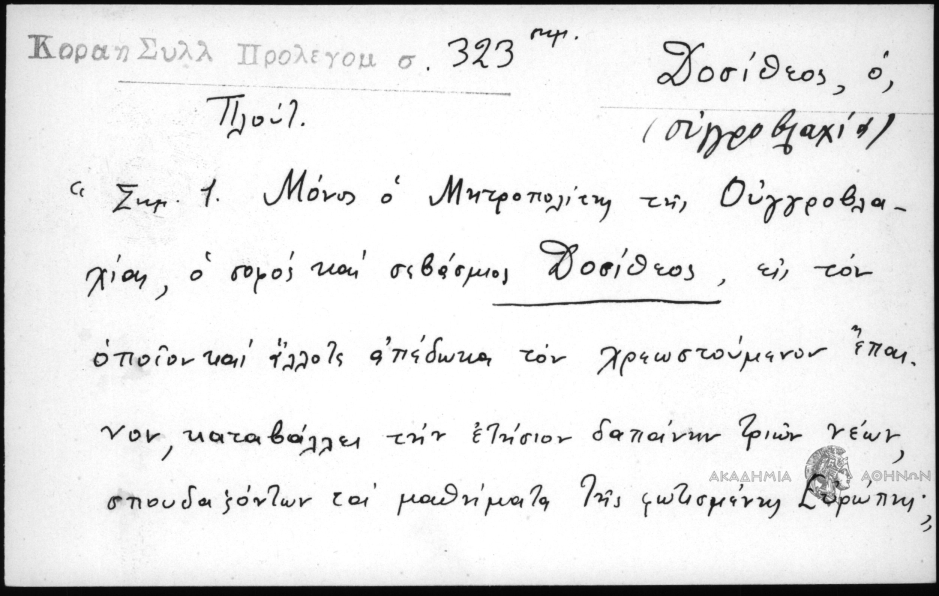 Κοραη Συλλ Προλεγομ σ. 323 σημ.
Δοσίθεος, ὁ,
Πλούτ.
(οὑγγροβλαχία)
“ Σημ. 1. Μόνος ὁ Μητροπολίτης τῆς Οὑγγροβλα-
χίας, ὁ σοφός καί σεβάσμιος Δοσίθεος, εἰς τόν
ὁποῖον καί ἄλλοτε ἀπέδωκα τόν χρεωστούμενον ἔπαι-
νον, καταβάλλει τήν ἐτήσιον δαπάνην τριῶν νέων,
σπουδαζόντων τά μαθήματα τῆς φωτισμένης Εὐρώπης;
ΑΚΑΔΗΜΙΑ ΑΘΗΝΩΝ